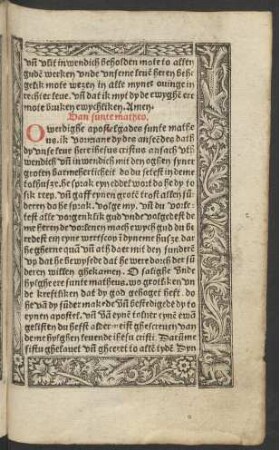 vñ vñt inwendich beholden mote to allen
gudē werken vnde vnseme leuē heren behe
gelik mote wezen in alle mynet ouinge in
rechter leue. vñ dat ik myt dy de ewyghē ere
mote bruken ewychliken. Amen.
Van sunte matheo.
O werdighe apostel gades sunte mathe
us. ik vormane dy des ansendes dat
dy vnse leue here ihesus cristus ansach vth
wendich vñ inwendich mit den oghen syner
groten barmeherticheit do du setest in deme
tolhuse. he sprak eyn edder wort do he dy to
sik reep. vñ gaff eynen grote trost allen sū
deren do he sprak. volge my. vñ du vorle
test alle vorgenklik gud vnde volgedest de
me heren do de vorlenen mach ewych gud du be
redest ein eyne wertscop i dyneme huse dar
he gherne quā vñ ath dar mit den sunder
vp dat he bewysede dat he were dorch der sū
deren willen ghekamen. O salighe vnde
hylghe ere sunte matheus. wo grot ken vn
de kreftliken dat dy god gehoget heft. do
he vā dy sūder makede vñ bestedigede dy to
eynen apostel. vñ vā eyne tolner eynē ewā
gelisten du heffst alder erst ghescreuen van
deme hylghen leuende ihesu cristi. Darūme
sistu ghelauet vñ gheeret to allē tydē Dyn